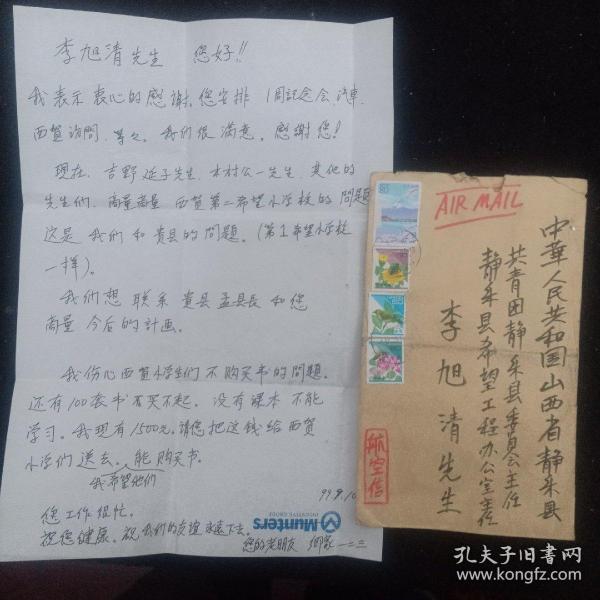 李旭清先生 您好!!
我表示衷心的感谢。您安排 1周記念会、汽車、
西贺訪問、等々。我们很满意。感谢您!
現在、吉野延子先生、木村公一先生、其他的
先生们、商量商量 西贺第二希望小学校的问題
这是 我们和貴县的问題。(第1希望小学校
一样)。
我们想 联系 貴县 孟县長 和您
商量 今后的计画。
我伤心西贺小学生们 不购买书的问題。
还有100套书 不买不起。没有課本 不能
学习。我現有1500元。請您把这錢给西贺
小学们送去。能购买书。
我希望他们
您工作很忙。
祝您健康。祝我们的友谊永遠下去。
99.9.10
Munters
您的老朋友
AIR MAIL
中華人民共和国山西省静乐县
共青团静乐县委員会主任
静乐县希望工程办公室主任
李旭清先生
航空信
孔夫子旧书网
www.kongfz.com